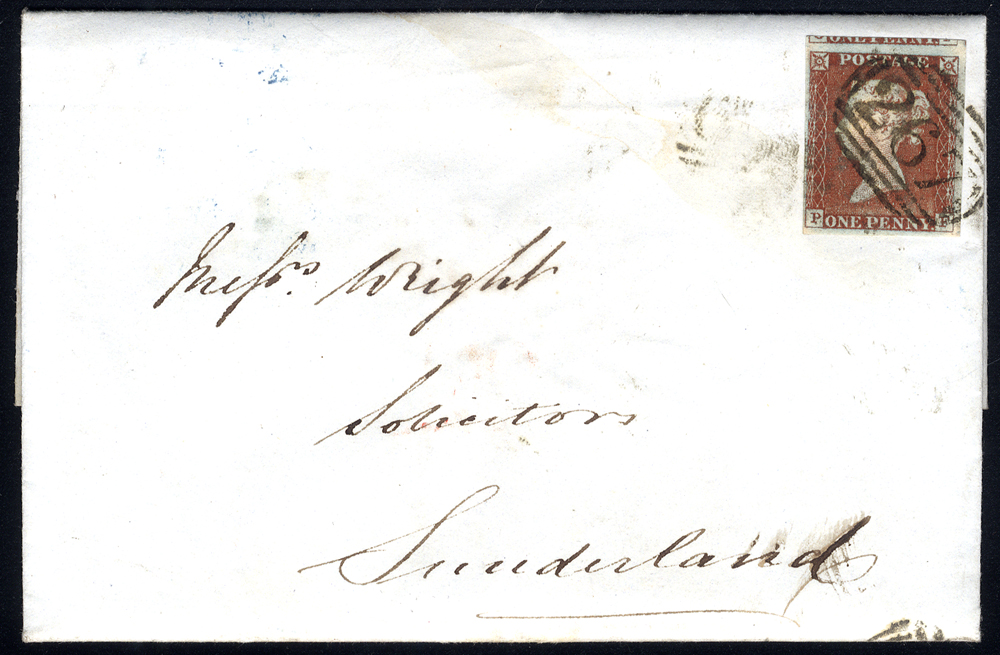 ONE PENNY.
POSTAGE
26
P ONE PENNY.
Messrs. Wright
Solicitors
Sunderland